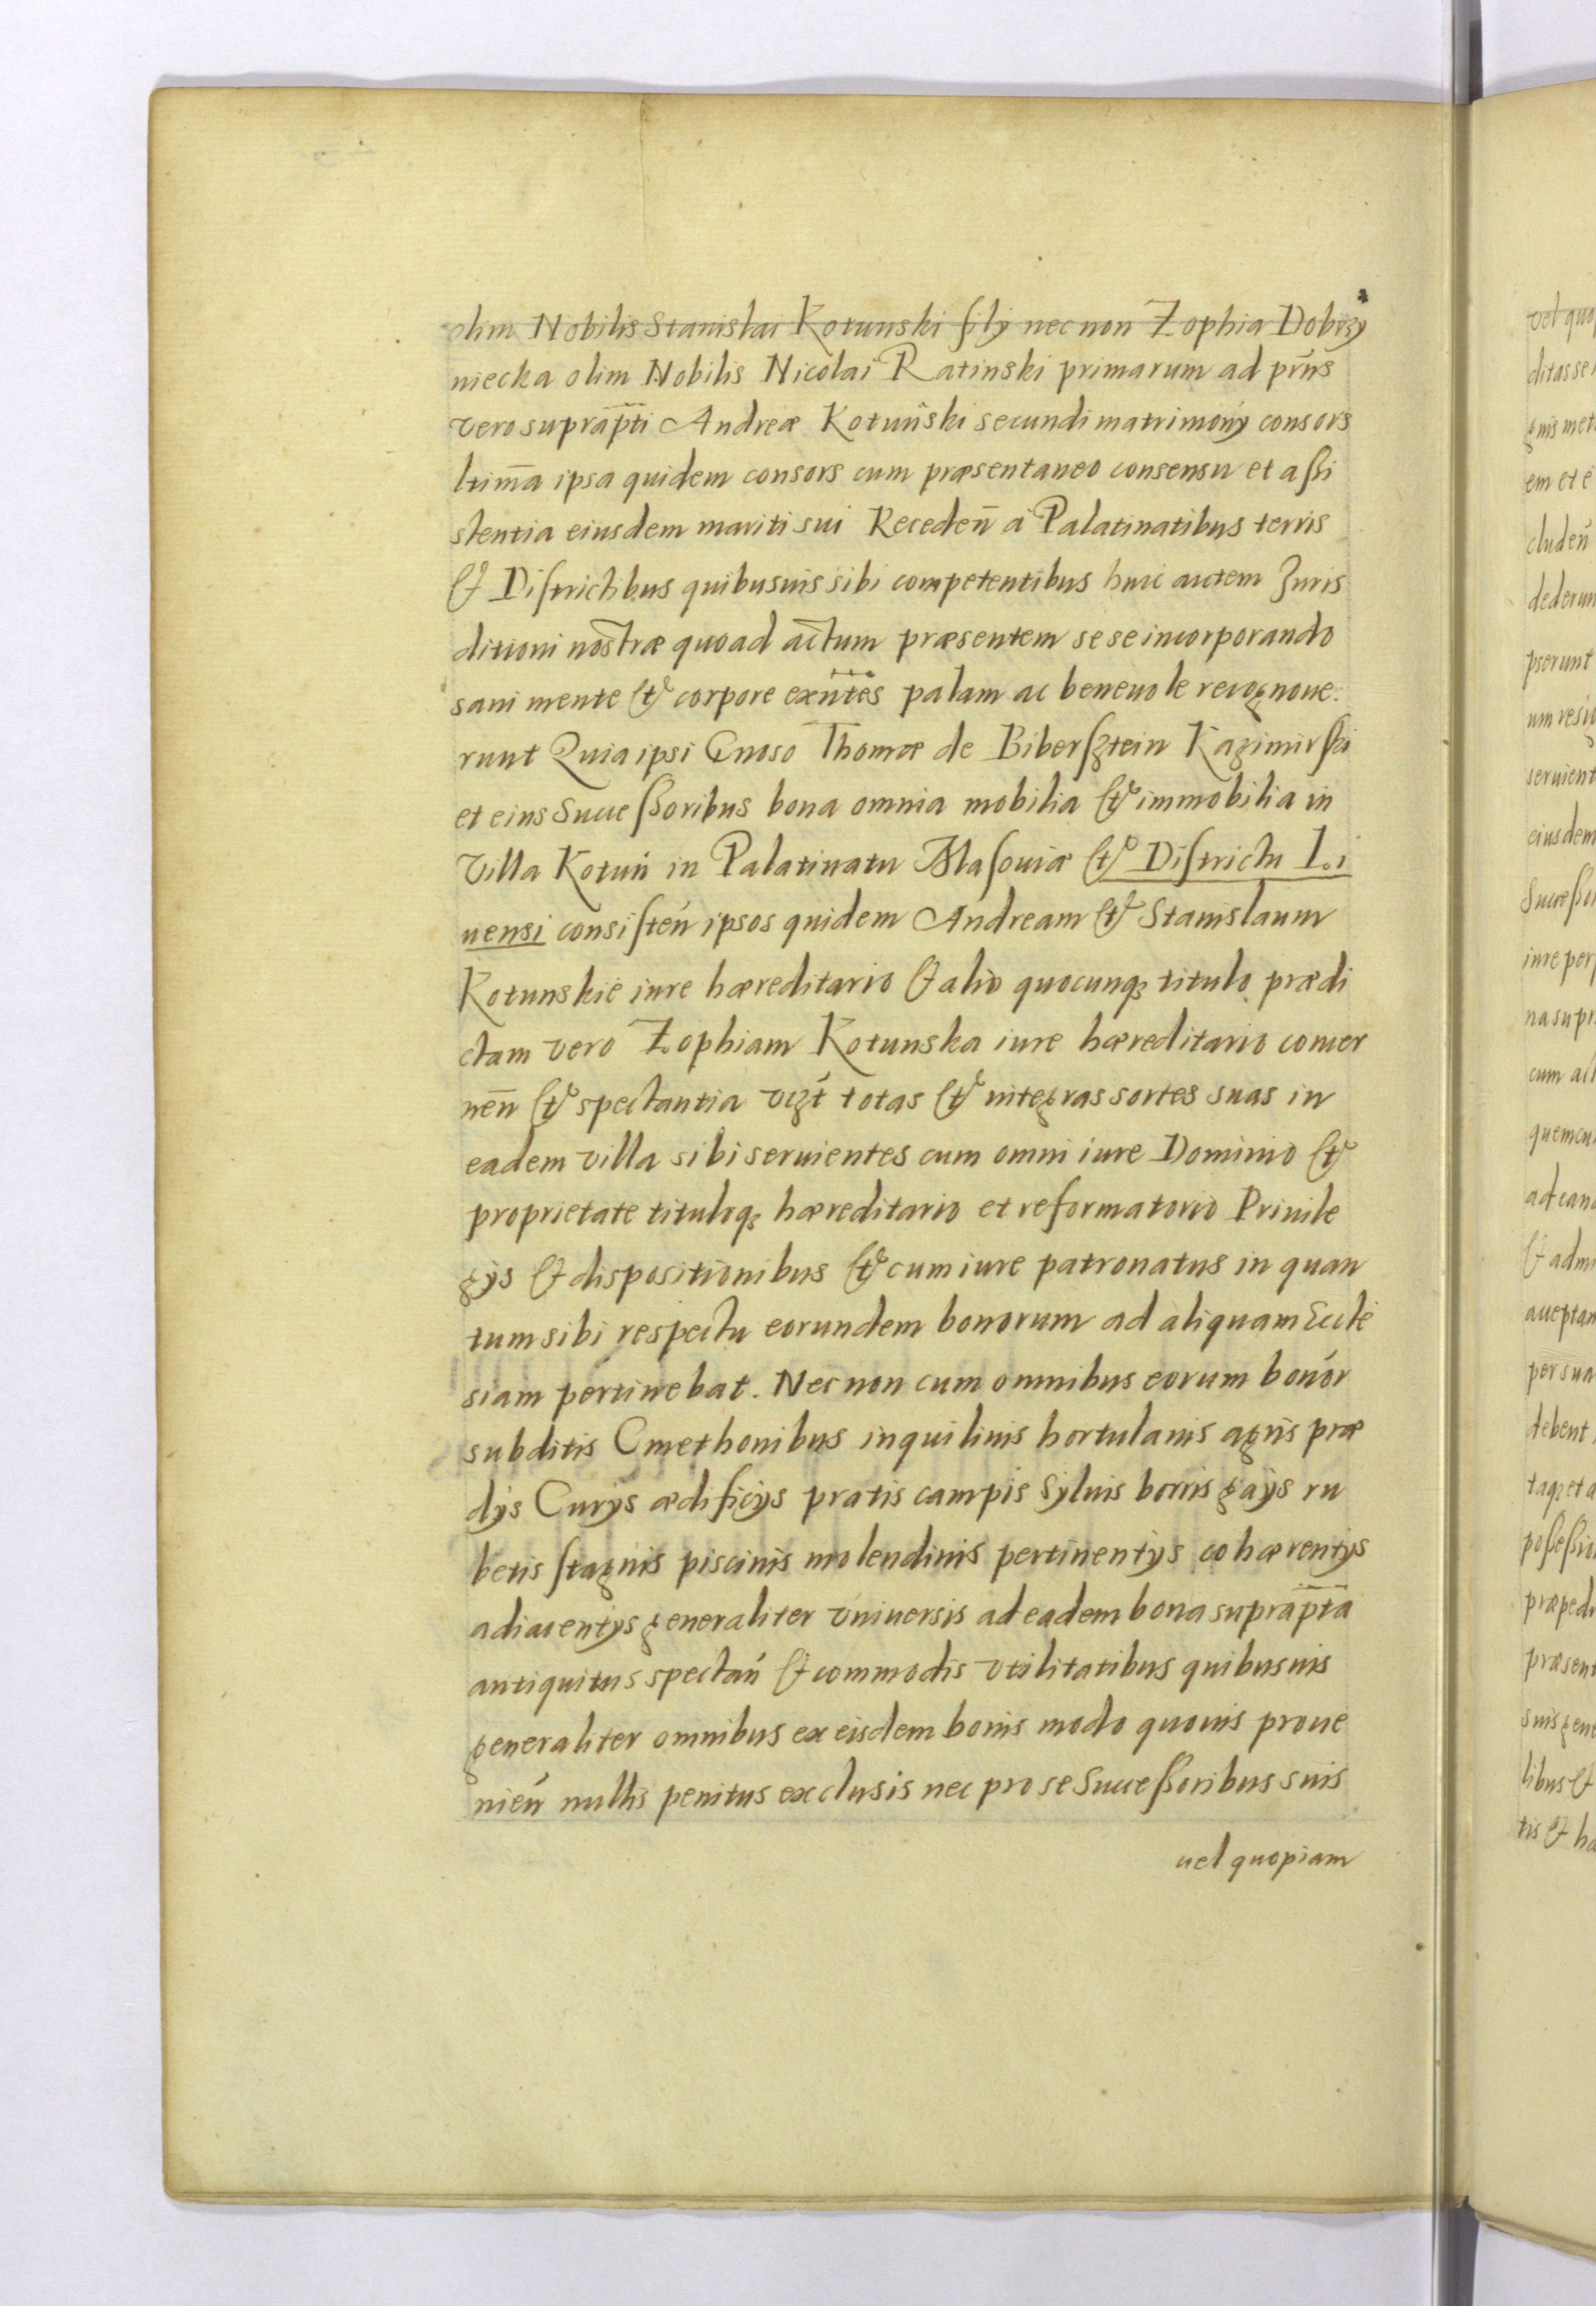 olim Nobilis Stanislai Kotunski filÿ nec non Zophia Dobrzy
niecka olim Nobilis Nicolai Ratinski primarum ad prn̄s
vero suprap̄ti Andreæ Kotuński secundi matrimonÿ consors
ltim̄a ipsa quidem consors cum præsentaneo consensu et aßi
stentia eiusdem mariti sui Receden̄ a Palatinatibus terris
& Districtibus quibusuis sibi competentibus huic autem Juris
ditioni nostræ quoad actum præsentem sese incorporando
sani mente & corpore exn̄tes palam ac beneuole recognoue:
runt Quia ipsi Gnoso Thomæ de Biberſztein Kazimirſki
et eius Succeßoribus bona omnia mobilia & immobilia in
Villa Kotuń in Palatinatu Maſouiæ & Diſtrictu Li
uensi consiſteń ipsos quidem Andream & Stanislaum
Kotunskie iure hæreditario & alio quocunqꝫ titulo prædi
ctam vero Zophiam Kotunska iure hæreditario concer
nen̄ & spectantia vczt́ totas & integras sortes suas in
eadem villa sibi seruientes cum omni iure Dominio &
proprietate tituloqꝫ hæreditario et reformatorio Priuile
gÿs & dispositionibus & cum iure patronatus in quan
tum sibi respectu eorundem bonorum ad aliquam Eccle
siam pertinebat. Nec non cum omnibus eorum bonór
subditis Cmethonibus inquilinis hortulanis agris præ
dÿs Curÿs ædificÿs pratis campis Syluis borris gaÿs ru
betis ſtagnis piscinis molendinis pertinentÿs cohærentÿs
adiacentÿs generaliter vniuersis ad eadem bona suprap̄ta
antiquitus spectań & commodis vtilitatibus quibusuis
generaliter omnibus ex eisdem bonis modo quouis proue
nień nullis penitus exclusis nec pro se Succeßoribus suis
uel quopiam